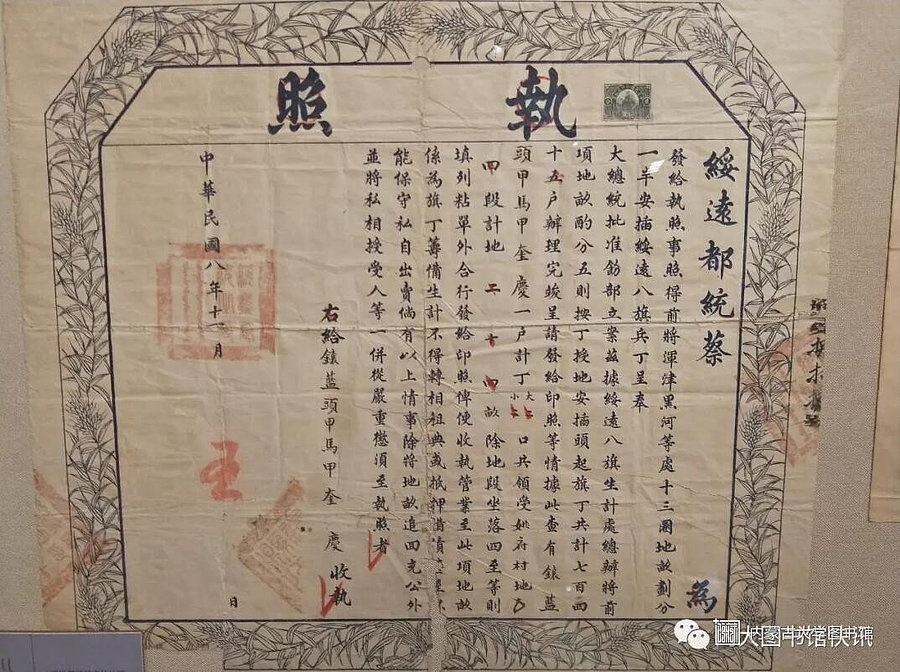 執照
綏遠都統蔡 為
發給執照事照得前將渾津黑河等處十三圈地畝劃分
一半安插綏遠八旗兵丁呈奉
大總統批准飭部立案茲據綏遠八旗生計處總辦將前
項地畝酌分五則按丁授地安插頭起旗丁共計七百四
十五戶辦理完竣呈請發給印照等情據此查有鑲藍
頭甲馬甲奎慶一戶計丁大 小 口共領受姚府村地
四段計地二十四畝 除地段坐落四至等則
填列粘單外合行發給印照俾便收執管業至此項地畝
係為旗丁籌備生計不得轉相租典或抵押借債
能保守私自出賣倘有以上情事除將地畝追回充公外
並將私相授受人等一併從嚴重懲須至執照者
右給鑲藍頭甲馬甲奎慶 收執
中華民國八年十一月 日